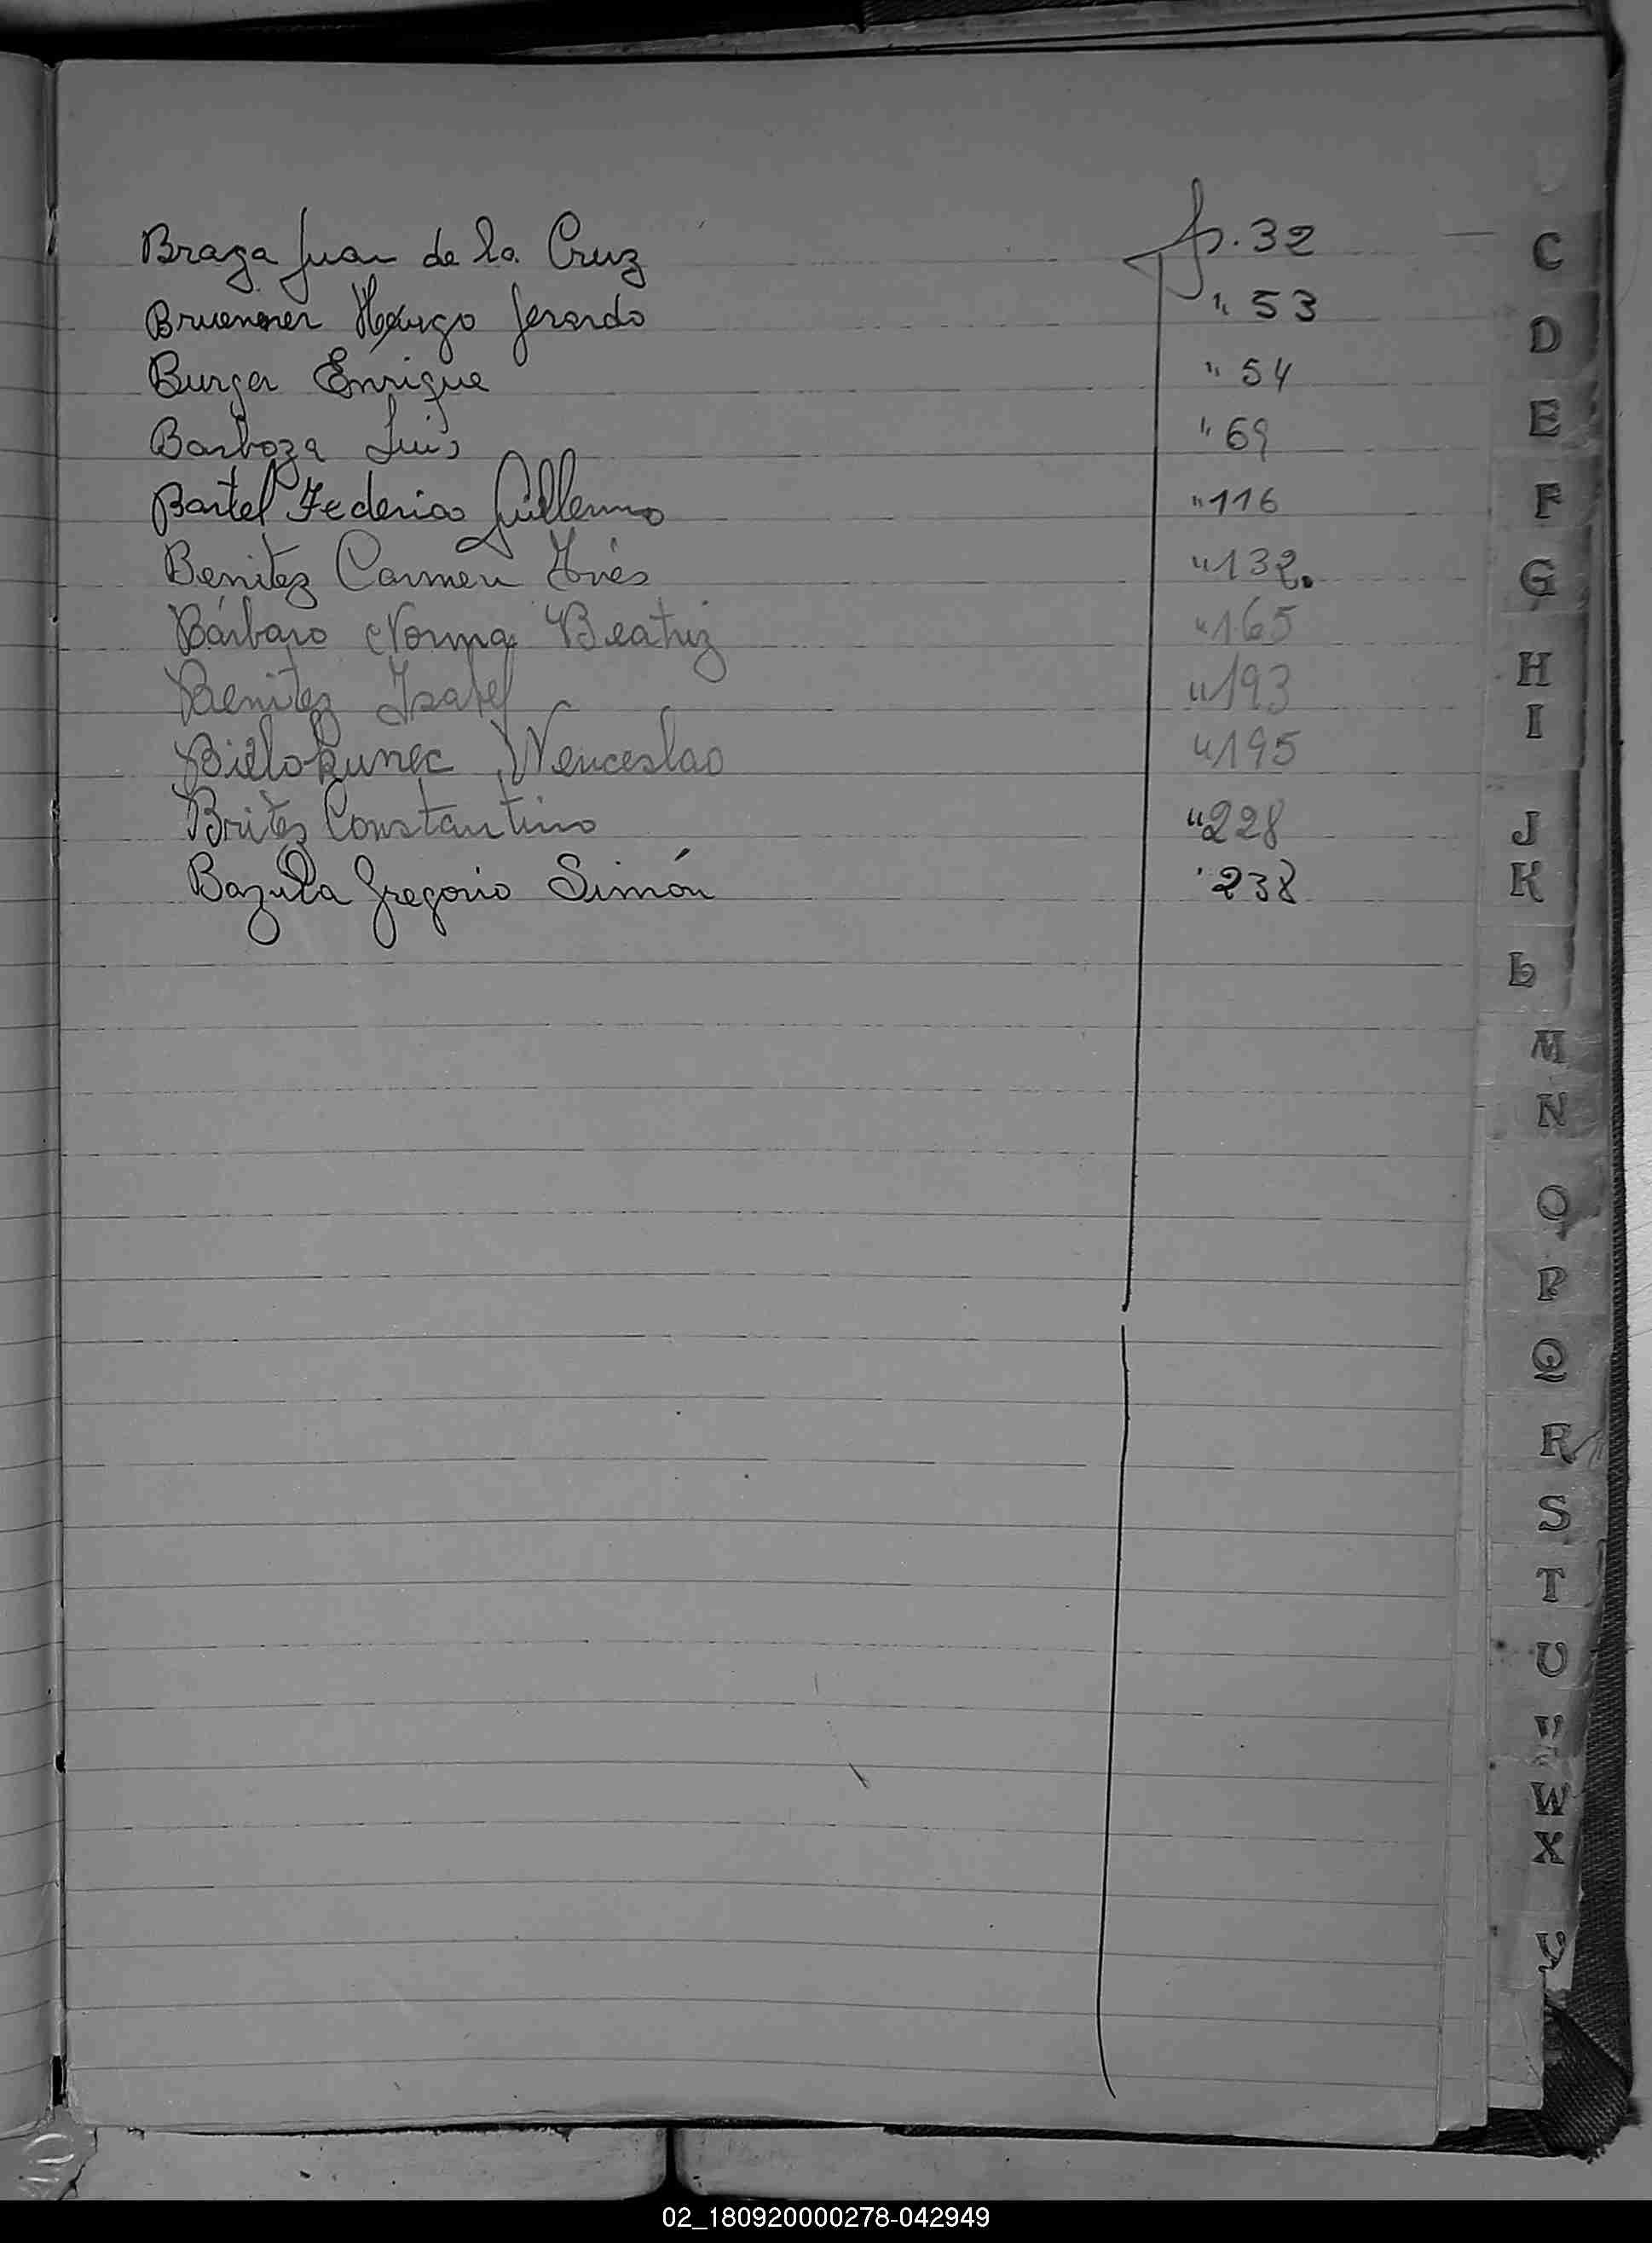 Braga Juan de la Cruz p. 32
Bruenner Hugo Gerardo " 53
Burger Enrique " 54
Barboza Luis " 69
Bartel Federico Guillermo " 116
Benitez Carmen Inés " 132.
Bárbaro Norma Beatriz " 165
Benitez Isabel " 193
Bielokunec Wenceslao " 195
Britez Constantino " 228
Bazula Gregorio Simón " 238
C
D
E
F
G
H
I
J
K
L
M
N
O
P
Q
R
S
T
U
V
W
X
Y
02_180920000278-042949